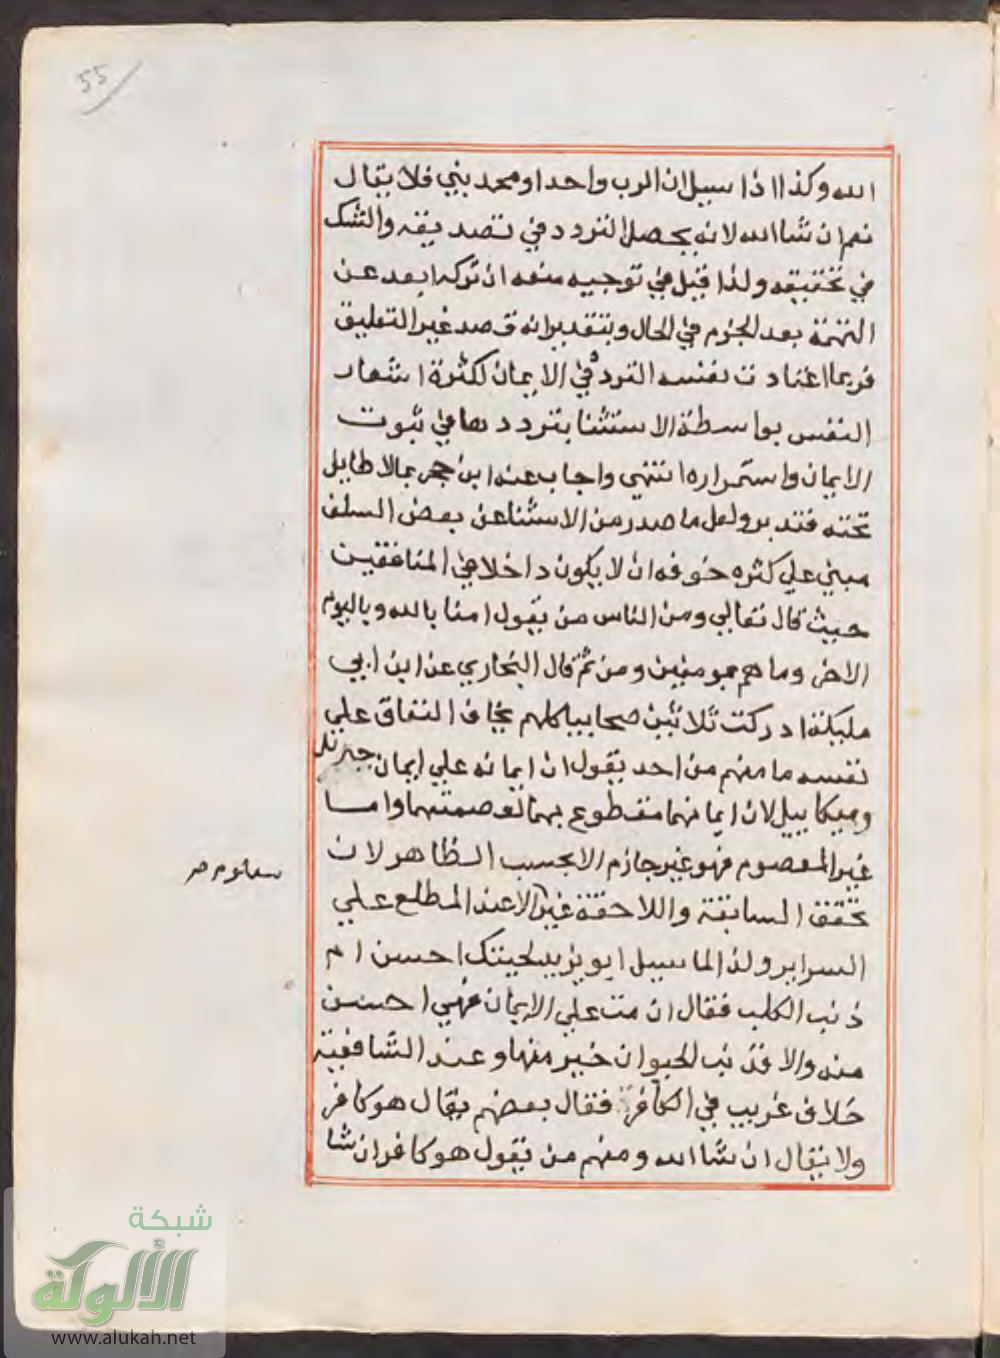 55
الله وكذا اذا سيل ان الرب واحد او محمد نبي فلا يقال
نعم ان شا الله لانه يحصل التردد في تصديقه والشك
في تحقيقه ولذا قيل في توجيه منعه ان تركه ابعد عن
التهمة بعد الجزم في الحال وبتقدير انه قصد غير التعليق
فربما اعتادت نفسه التردد في الايمان لكثرة اشعار
النفس بواسطة الاستثنا بترددها في ثبوت
الايمان واستمراره انتهي واجاب عنه ابن حجر بما لا طايل
تحته فتدبر ولعل ما صدر من الاستثنا عن بعض السلف
مبني علي كثره خوفه ان لا يكون داخلا في المنافقين
حيث قال تعالي ومن الناس من يقول امنا بالله وباليوم
الاخر وما هم بمومنين ومن ثم قال البخاري عن ابن ابي
مليكة ادركت ثلاثين صحابيا كلهم يخاف النفاق علي
نفسه ما منهم من احد يقول ان ايمانه علي ايمان جبرئل
وميكاييل لان ايمانهما مقطوع بهما لعصمتهما واما
غير المعصوم فهو غير جازم الا بحسب الظاهر لان
تحقق السابقة واللاحقة غير الا عند المطلع علي
السراير ولذا لما سيل ابو يزيد لحيتك احسن ام
ذنب الكلب فقال ان مت علي الايمان فهي احسن
منه والا فذنب الحيوان خير منها وعند الشافعية
خلاف غريب في الكافر فقال بعضهم يقال هو كافر
ولا يقال ان شا الله ومنهم من يقول هو كافر ان شا
شبكة
الألوكة
www.alukah.net